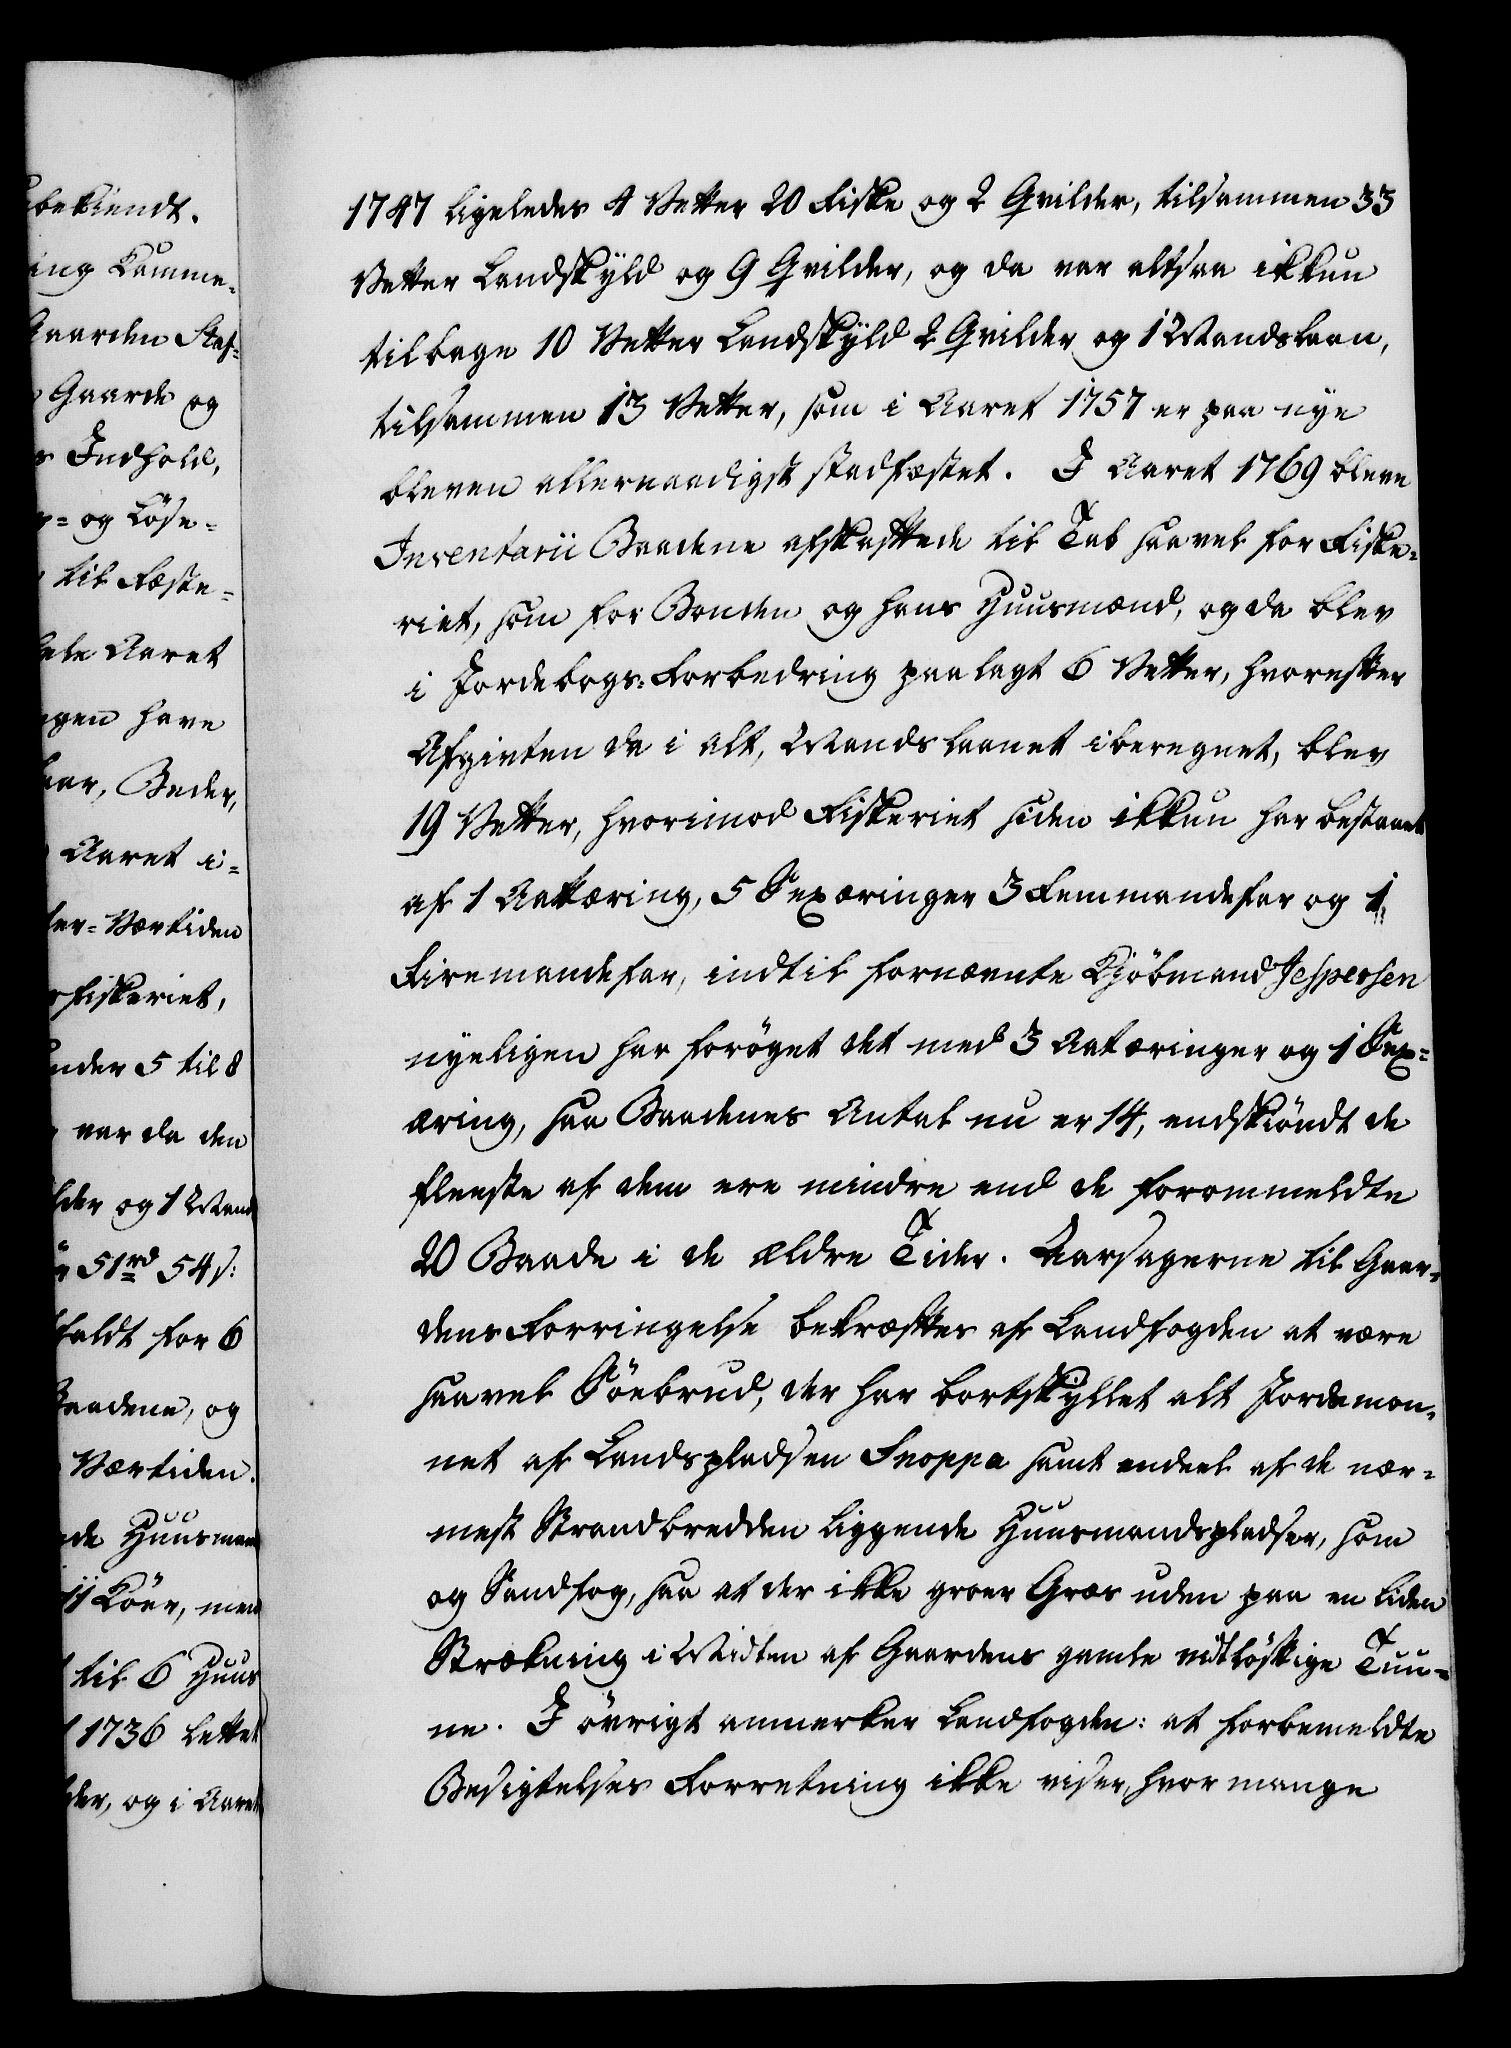 bekiendt.
ing Kamme-
Gaarden Staf-
Gaarde og
s Indhold,
og Löse-
til Fæste-
hele Aaret
gen have
aar, Beder,
Aaret i-
ter-Vertiden
Fiskeriet,
under 5 til 8
var da den
lder og 1 Mand
51rd 54 s:
faldt for 6
Baadene, og
Vertiden.
de Huusmænd
11 Köer, men
til 6 Huus
1736 lettet
der, og i Aaret
1747 ligeledes 4 Vetter 20 Fiske og 2 Qvilder, tilsammen 33
Vetter Landskÿld og 9 Qvilder, og da var altsaa ikkun
tilbage 10 Vetter Landskÿld 2 Qvilder og 1 Mandslaan,
tilsammen 13 Vetter, som i Aaret 1757 er paa nye
bleven allernaadigst stadfæstet. I Aaret 1769 bleve
Inventarii Baadene afskaffede til Tab saavel for Fiske-
riet, som for Bonden og hans Huusmænd, og da blev
i Jordebogs-Forbedring paalagt 6 Vetter, hvorefter
Afgivten da i alt, Mandslaanet iberegnet, blev
19 Vetter, hvorimod Fiskeriet siden ikkun har bestaaet
af 1 Aattæring, 5 Sexæringer 3 Femmandefar og 1
Firemandefar, indtil fornævnte Kjöbmand Jespersen
nyeligen har foröget det med 3 Aatæringer og 1 Sex-
æring, saa Baadenes Antal nu er 14, endskiöndt de
fleeste af dem ere mindre end de forommeldte
20 Baade i de ældre Tider. Aarsagerne til Gaar-
dens Forringelse bekræftes af Landfogden at være
saavel Söebrud, der har bortskÿllet alt Jordsmon-
net af Landspladsen Snoppa samt endeel af de nær-
mest Strandbredden liggende Huusmandspladser, som
og Sandfog, saa at der ikke groer Græs uden paa en liden
Strækning i Midten af Gaardens gamle vidtlöftige Tuu-
ne. I övrigt anmerker Landfogden: at forbemeldte
Besigtelses Forretning ikke viser, hvor mange